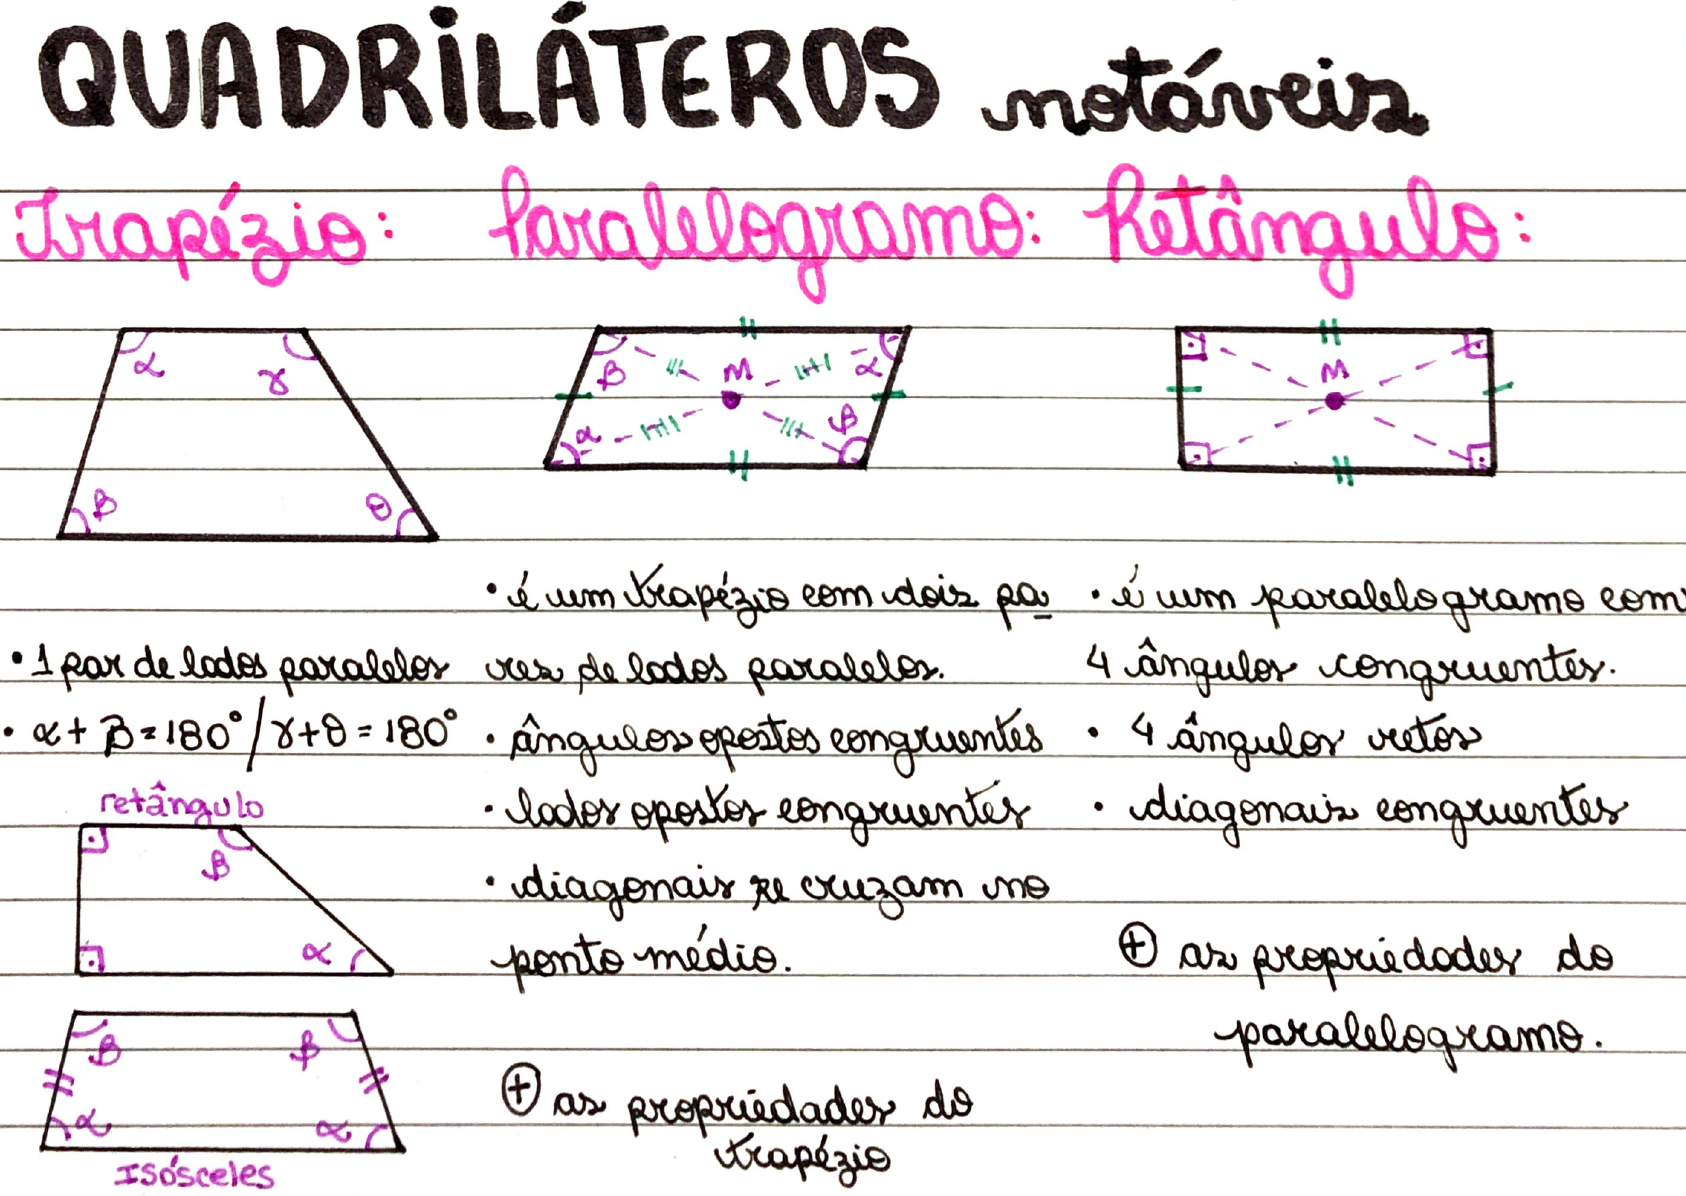 QUADRILÁTEROS notáveis
Trapézio: Paralelogramo: Retângulo:
α γ
β θ
β M α
α β
M
• 1 par de lados paralelos
• α + β = 180° / γ + θ = 180°
retângulo
β
α
β β
α α
Isósceles
• é um trapézio com dois pa
res de lados paralelos.
• ângulos opostos congruentes
• lados opostos congruentes
• diagonais se cruzam no
ponto médio.
⊕ as propriedades do
trapézio
• é um paralelogramo com
4 ângulos congruentes.
• 4 ângulos retos
• diagonais congruentes
⊕ as propriedades do
paralelogramo.